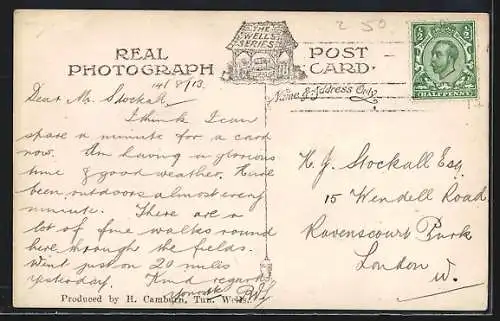 THE
WELLS
SERIES
REAL
PHOTOGRAPH
POST
CARD.
Name & Address Only
HALFPENNY
2 50
14/8/13.
Dear Mr. Stockall,
I think I can
spare a minute for a card
now. Am having a glorious
time & good weather. Have
been outdoors almost every
minute. There are a
lot of fine walks round
here through the fields.
Went just on 20 miles
yesterday. Kind regards
Produced by H. Camburn, Tun. Wells.
H. J. Stockall Esq.
15 Wendell Road
Ravenscourt Park
London
W.